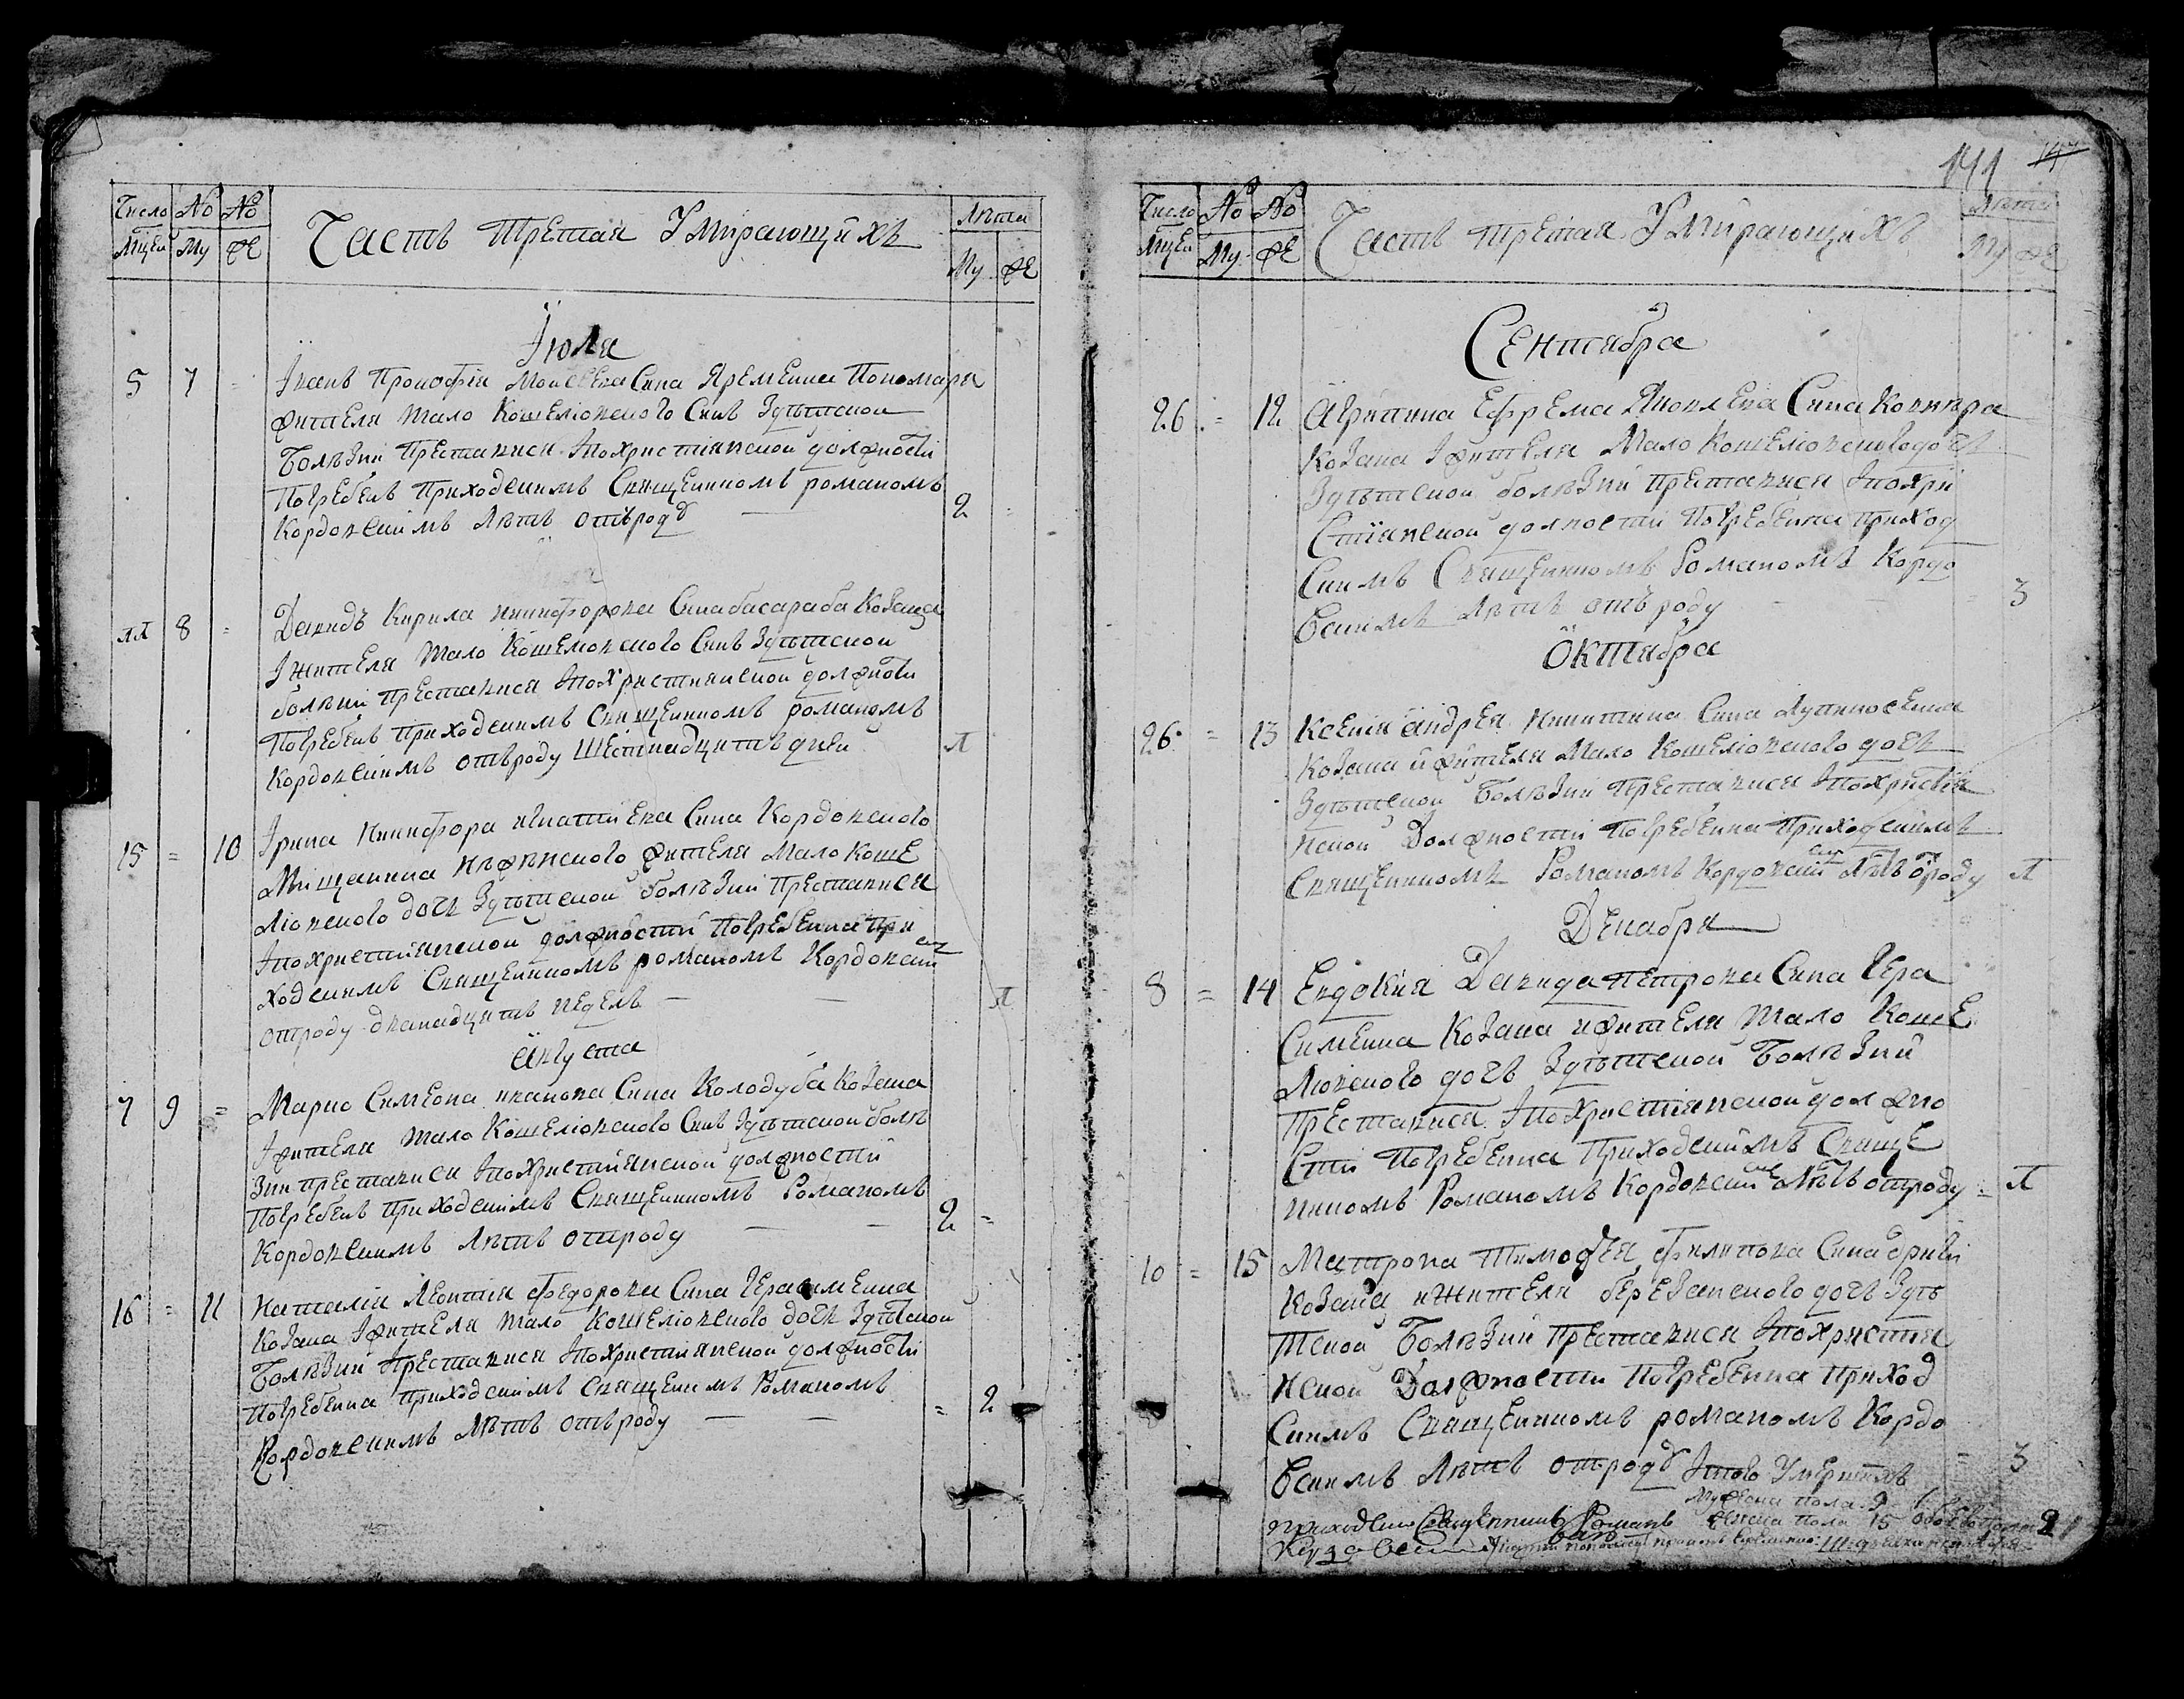 Число № № Часть Третая Умирающихъ лѣта
Мцей Му Же Му Же
Іюля
5 7 = Іванъ Прокофія Моисеева Сина Яременка Пономаря
жителя Мало Кошелювского Синъ Здѣтской
Болѣзни Преставися Ипохристіянской должности
Погребенъ Приходскимъ Священникомъ романомъ
Кордовскимъ лѣтъ отъроду 2
11 8 = Давидъ Кирила никифорова Сина басараба Козака
Ижителя Мало Кошелювского Синъ Здѣтской
болѣзни преставися Ипохристиянской должности
Погребенъ приходскимъ Священникомъ романомъ
Кордовскимъ отъроду Шестнадцять дней 1
15 = 10 Ірина Никифора игнатиева Сина Кордовского
Мищанина нѣжинского жителя Мало Коше
Люовского дочь Здѣтской болѣзни Преставися
Ипохристиянской должности Погребенна При
ходскимъ Священникомъ романомъ Кордовскимъ
отроду дванадцять недель 1
Августа
7 9 = Марко Симеона иванова Сина Колодуба Козака
Ижителя Мало Кошелювского Синъ Здѣтской болѣ
зни преставися Ипохристиянской должности
Погребенъ приходскимъ Священникомъ Романомъ
Кордовскимъ лѣтъ отроду 2 =
16 = 11 Наталія Леонтія федорова Сина Герасименка
Козака Ижителя Мало Кошелювского дочь Здѣтской
Болѣзни Преставися Ипохристиянской должности
Погребенна приходскимъ Священикмъ Романомъ
Кордовскимъ Лѣтъ отъроду = 2
141
Число № № Часть Третая Умирающихъ Лѣта
Мцей Му Же Му Же
Сентября
26 = 12 Агрипина Ефрема Яковлева Сина
Козака Ижителя Мало Кошелювского дочь
Здѣтской болѣзни преставися Ипохри
Стіянской должности Погребенна приход
Скимъ Священникомъ Романомъ Кордо
вскимъ лѣтъ отъроду 3
Октября
26 = 13 Ксения андрея Никитина Сина
Козака ижителя Мало Кошелювского дочь
Здѣтской Болѣзни Преставися Ипохристия
нской Должности Погребенна Приходскимъ
Священникомъ Романомъ Кордовскимъ лѣтъ отроду 1
Декабря
8 = 14 Евдокия Давида петрова Сина Гера
Сименка Козака ижителя Мало Коше
Люовского дочь Здѣтской Болѣзни
преставися Ипохристиянской должно
Сти Погребенна Приходскимъ Свяще
нникомъ Романомъ Кордовскимъ лѣтъ отроду = 1
10 = 15 Матрона Тимофея филипова Сина
Козака ижителя березанского дочь Здѣ
тской Болѣзни преставися Ипохристия
нской Должности Погребенна приход
Скимъ Священникомъ романомъ Кордо
вскимъ Лѣтъ отроду = 3
Итого Умершихъ
Мужеска пола 9
приходский Священникъ Романъ женска пола 15